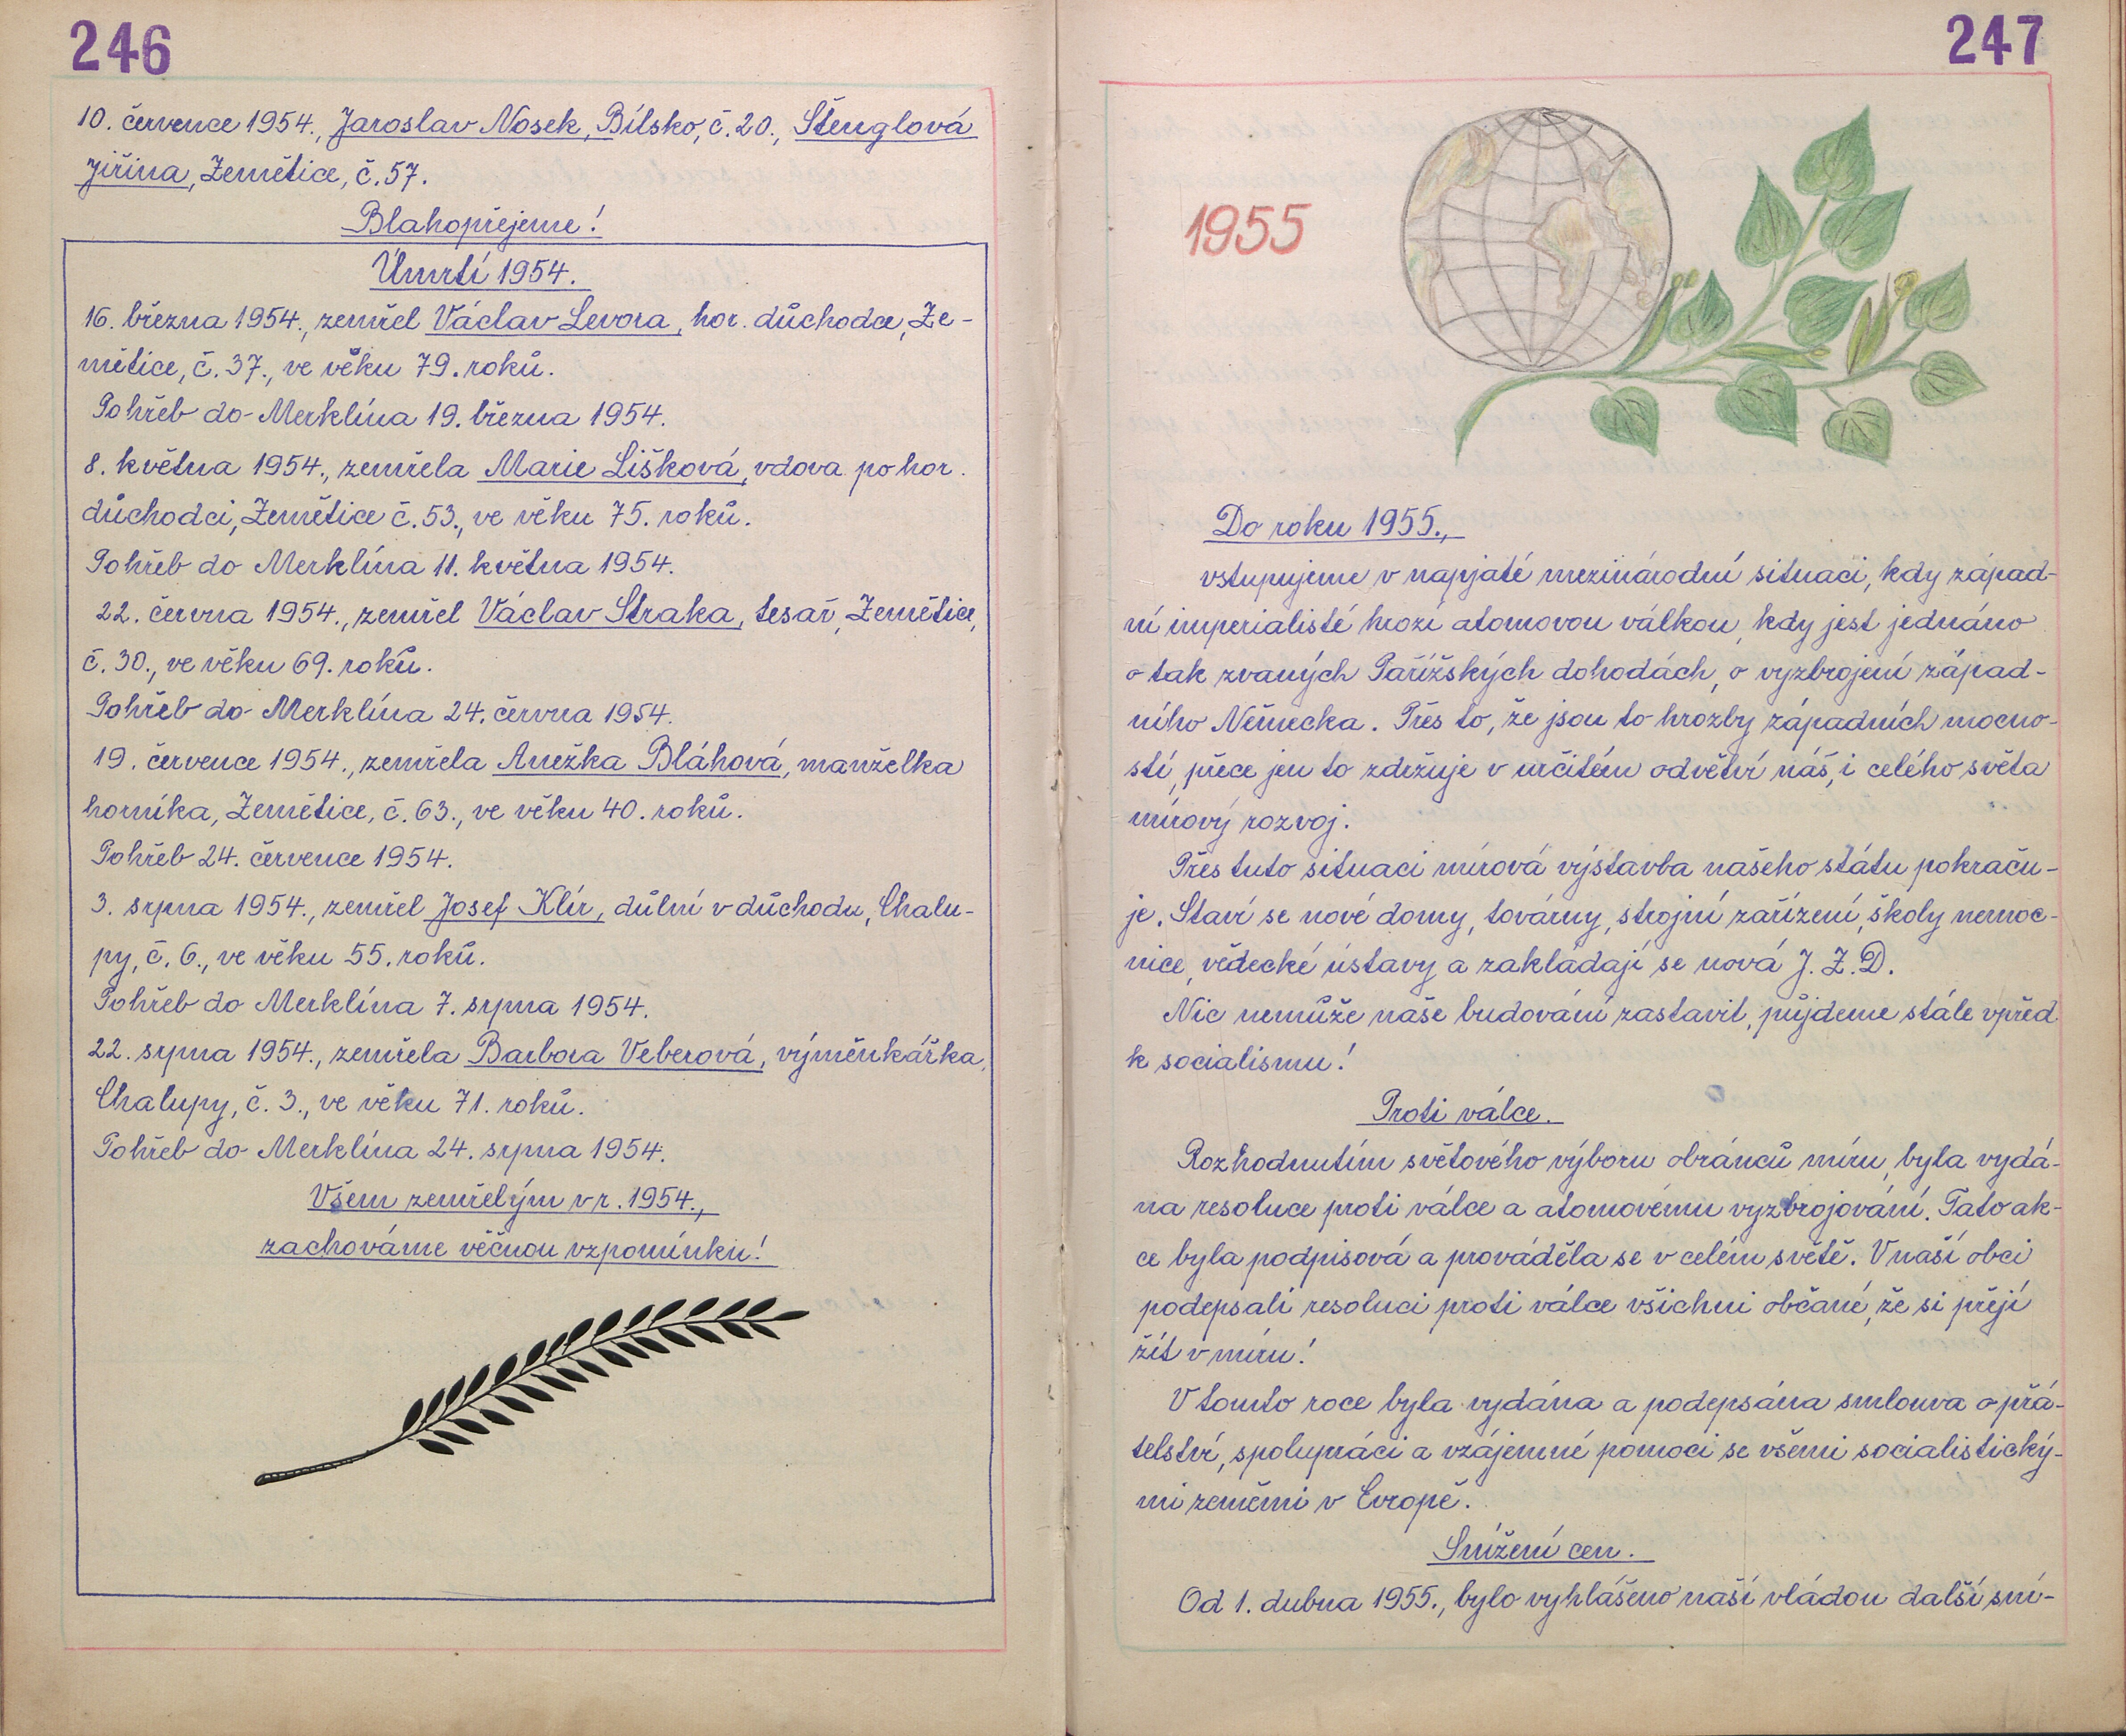 246
10. července 1954., Jaroslav Nosek, Bílsko, č. 20., Štenglová
Jiřina, Zemětice, č. 57.
Blahopřejeme!
Úmrtí 1954.
16. března 1954., zemřel Václav Levora, hor. důchodce, Ze-
mětice, č. 37., ve věku 79. roků.
Pohřeb do Merklína 19. března 1954.
8. května 1954., zemřela Marie Lišková, vdova po hor.
důchodci, Zemětice č. 53., ve věku 75. roků.
Pohřeb do Merklína 11. května 1954.
22. června 1954., zemřel Václav Straka, tesař, Zemětice,
č. 30., ve věku 69. roků.
Pohřeb do Merklína 24. června 1954.
19. července 1954., zemřela Anežka Bláhová, manželka
horníka, Zemětice, č. 63., ve věku 40. roků.
Pohřeb 24. července 1954.
3. srpna 1954., zemřel Josef Klír, důlní v důchodu, Chalu-
py, č. 6., ve věku 55. roků.
Pohřeb do Merklína 7. srpna 1954.
22. srpna 1954., zemřela Barbora Veberová, výměnkářka,
Chalupy, č. 3., ve věku 71. roků.
Pohřeb do Merklína 24. srpna 1954.
Všem zemřelým v r. 1954.,
zachováme věčnou vzpomínku!
247
1955
Do roku 1955.,
vstupujeme v napjaté mezinárodní situaci, kdy západ-
ní imperialisté hrozí atomovou válkou, kdy jest jednáno
o tak zvaných Pařížských dohodách, o vyzbrojení západ-
ního Německa. Přes to, že jsou to hrozby západních mocno-
stí, přece jen to zdržuje v určitém odvětví náš, i celého světa
mírový rozvoj.
Přes tuto situaci mírová výstavba našeho státu pokraču-
je. Staví se nové domy, továrny, strojní zařízení, školy nemoc-
nice, vědecké ústavy a zakládají se nová J. Z. D.
Nic nemůže naše budování zastavit, půjdeme stále vpřed
k socialismu!
Proti válce.
Rozhodnutím světového výboru obránců míru, byla vydá-
na resoluce proti válce a atomovému vyzbrojování. Tato ak-
ce byla podpisová a prováděla se v celém světě. V naší obci
podepsali resoluci proti válce všichni občané, že si přejí
žít v míru!
V tomto roce byla vydána a podepsána smlouva o přá-
telství, spolupráci a vzájemné pomoci se všemi socialistický-
mi zeměmi v Evropě.
Snížení cen.
Od 1. dubna 1955., bylo vyhlášeno naší vládou další sní-